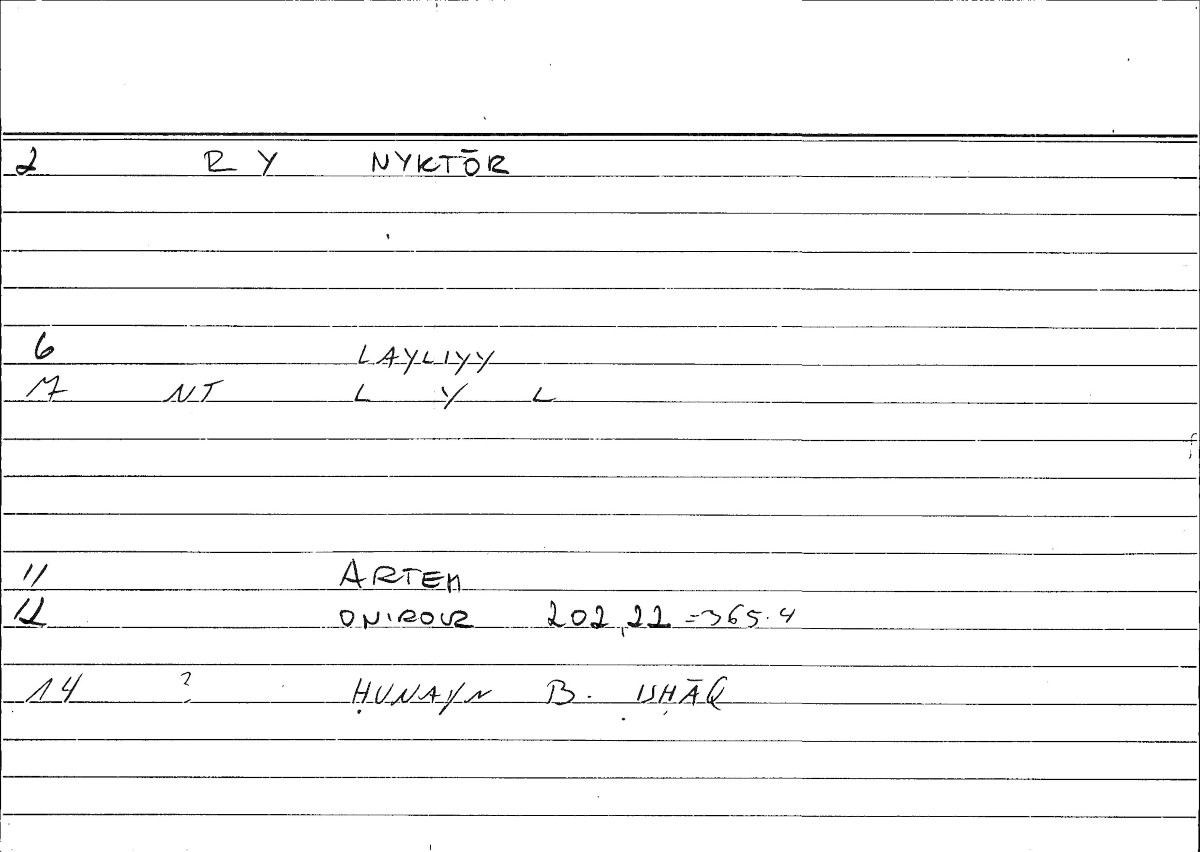 2 R Y NYKTŌR
6 LAYLIYY
7 NT L Y L
11 ARTEM
12 ONIROCR 202,22 = 365.4
14 ? ḤUNAYN B. ISḤĀQ